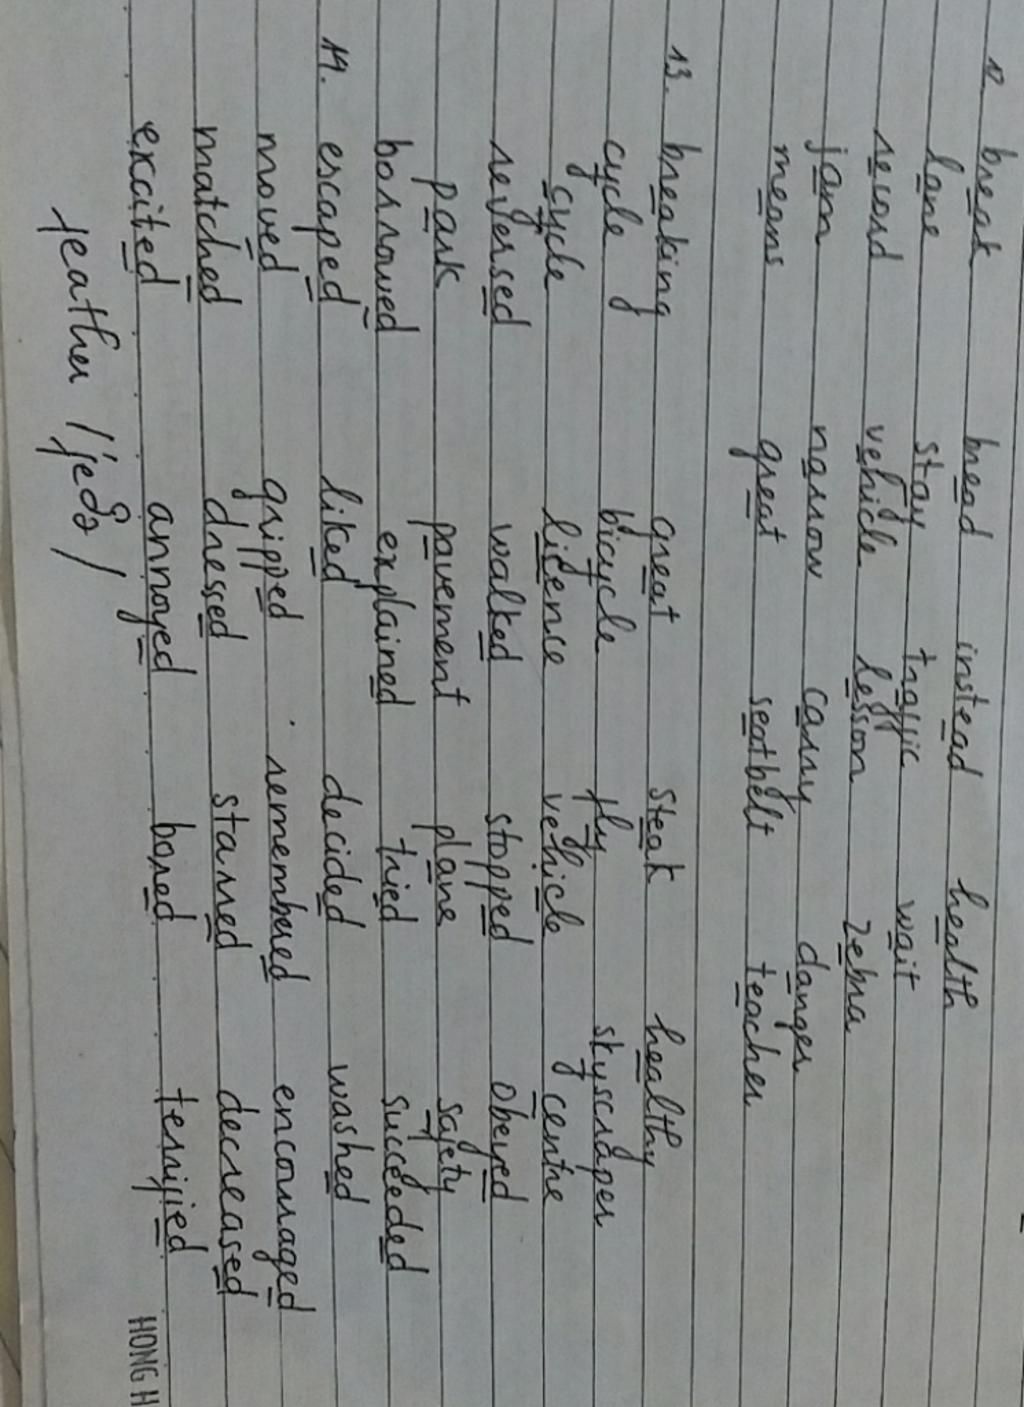 12. break bread instead health
lane stay traffic wait
record vehicle lesson zebra
jam narrow carry danger
means great seatbelt teacher
13. breaking great steak healthy
cycle bicycle fly skyscraper
cycle licence vehicle centre
reversed walked stopped obeyed
park pavement plane safety
borrowed explained tried succeeded
14. escaped liked decided washed
moved gripped remembered encouraged
matched dressed starred decreased
excited annoyed bored terrified
feather /feðə/
HONG H